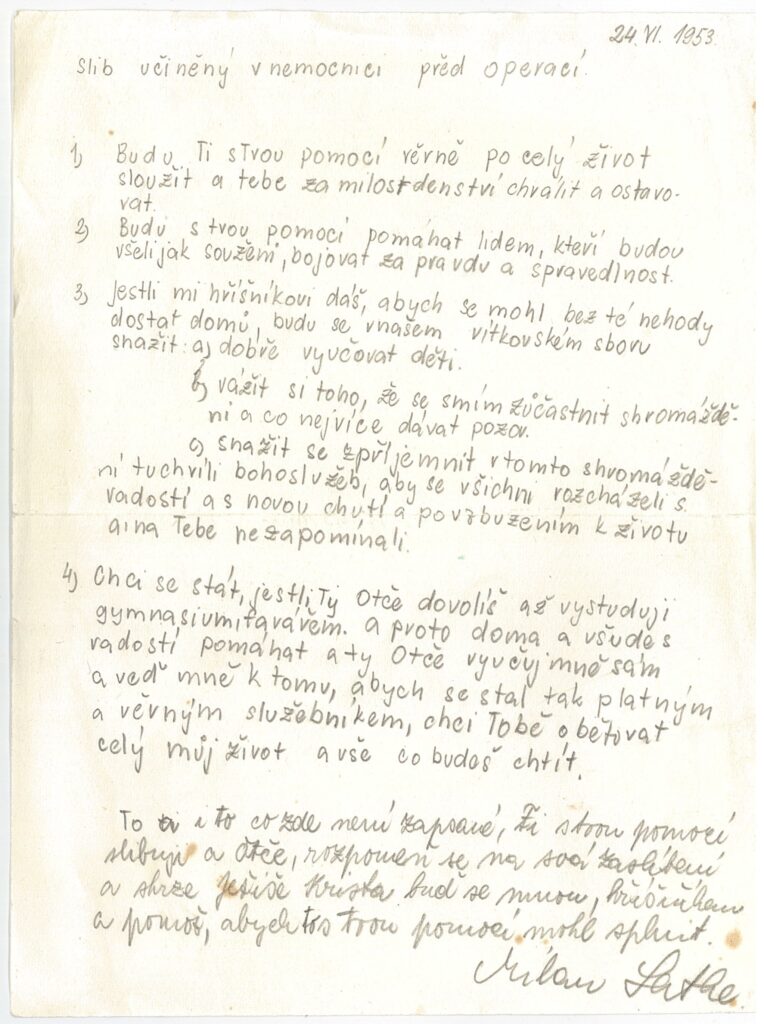 24. VI. 1953.
Slib učiněný v nemocnici před operací.
1) Budu Ti s tvou pomocí věrně po celý život
sloužit a tebe za milosrdenství chválit a oslavo-
vat.
2) Budu s tvou pomocí pomáhat lidem, kteří budou
všelijak souženi, bojovat za pravdu a spravedlnost.
3) Jestli mi hříšníkovi dáš, abych se mohl bez té nehody
dostat domů, budu se v našem vítkovském sboru
snažit: a) dobře vyučovat děti.
b) vážit si toho, že se smím zůčastnit shromáždě-
ní a co nejvíce dávat pozor.
c) snažit se zpříjemnit v tomto shromáždě-
ní tu chvíli bohoslužeb, aby se všichni rozcházeli s
radostí a s novou chutí a povzbuzením k životu
a na Tebe nezapomínali.
4) Chci se stát, jestli Ty Otče dovolíš až vystuduji
gymnasium farářem. a proto doma a všude s
radostí pomáhat a ty Otče vyučuj mně sám
a veď mně k tomu, abych se stal tak platným
a věrným služebníkem, chci Tobě obětovat
celý můj život a vše co budeš chtít.
To i to co zde není zapsané, Ti s tvou pomocí
slibuji a Otče, rozpomeň se na svá zaslíbení
a skrze Ježíše Krista buď se mnou, hříšníkem
a pomoz, abych to s tvou pomocí mohl splnit.
Milan